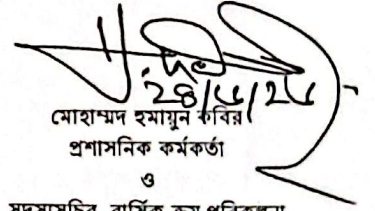 ২৪/৮/২৫
মোহাম্মদ হুমায়ুন কবির
প্রশাসনিক কর্মকর্তা
ও
সদস্যসচিব, বার্ষিক ক্রয় পরিকল্পনা